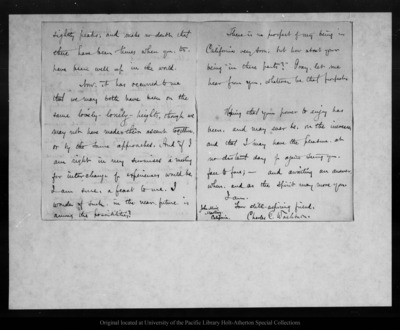 eighty peaks, and make no doubt that
there have been times when you
have been well up in the world.
Now, it has occurred to me
that we may both have been on the
same lovely lonely heights, though we
may not have made them ascent together,
or by the same approaches. And if I
am right in my surmises a meeting
for interchange of experiences would be
I am sure, a feast to me. I
wonder if such, in the near future is
among the possibilities?
There is no prospect of my being in
California very soon, but how about your
being "in these parts?" Pray, let me
hear from you, whatever be that prospect
Hoping that your power to enjoy has
been, and may ever be, on the increase
and that I may have the pleasure at
no distant day to again seeing you
face to face; — and awaiting an answer
when, and as the spirit may move you
I am.
Your still-aspiring friend,
Charles C.
John Muir
Martinez
California.
Original located at University of the Pacific Library Holt-Atherton Special Collections